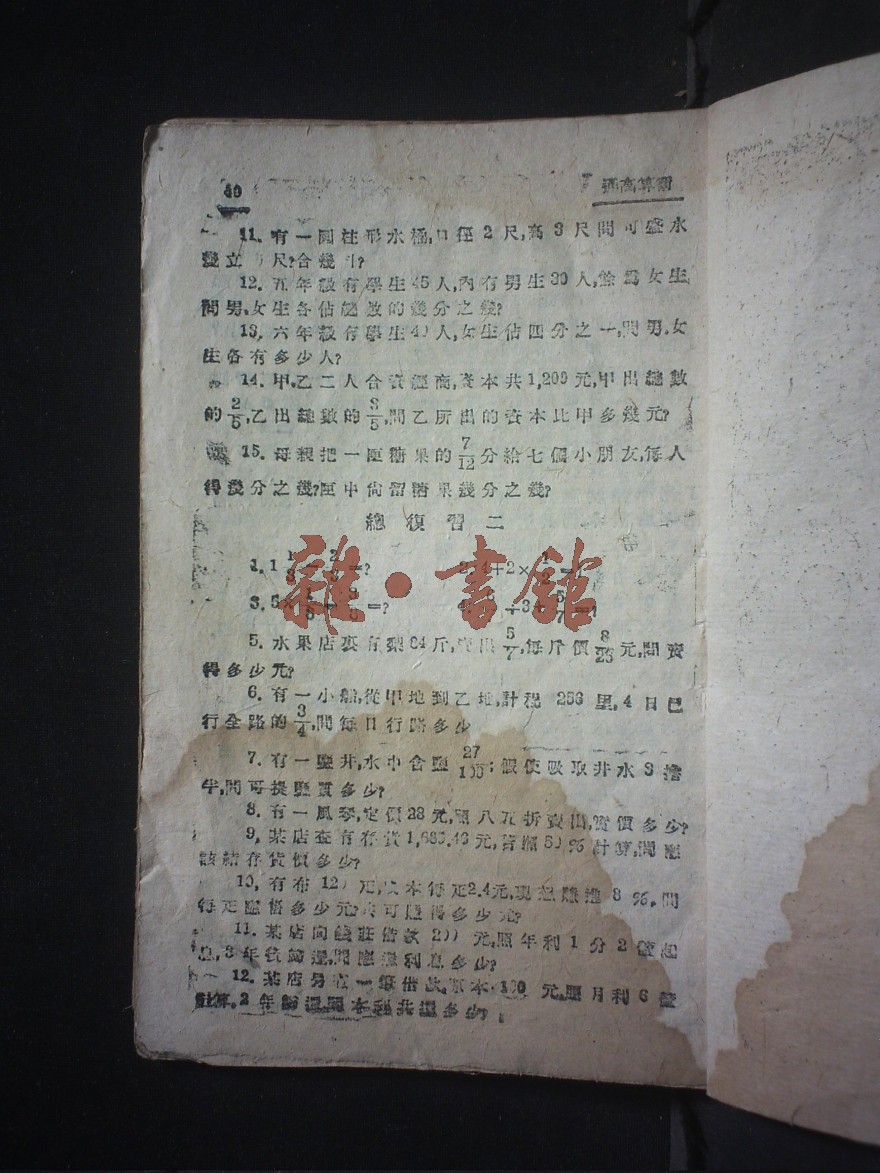 40 術算高通
11. 有一圓柱形水桶,口徑2尺,高3尺問可盛水
幾立 尺?合幾斗?
12. 五年級有學生45人,內有男生30人,餘爲女生
問男.女生各佔總數的幾分之幾?
13. 六年級有學生40人,女生佔四分之一,問男.女
生各有多少人?
14. 甲.乙二人合資經商,資本共1,200元,甲出總數
的2/5,乙出總數的3/5,問乙所出的資本比甲多幾元?
15. 母親把一匣糖果的7/12分給七個小朋友,每人
得幾分之幾?匣中尙留糖果幾分之幾?
總復習二
雜·書館
1. 1 =? 4+2×
3. =? =?
5. 水果店裏有梨84斤,賣出5/7,每斤價8/25元,問賣
得多少元?
6. 有一小船,從甲地到乙地,計程 256 里,4日已
行全路的3/4,問每日行路多少
7. 有一鹽井,水中含鹽27/100;假使吸取井水3擔
半,問可提鹽質多少?
8. 有一風琴,定價28元,照八五折賣出,實價多少?
9. 某店查有存貨 元,言照80%計算,問應
該結存貨價多少?
10. 有布120疋,成本每疋2.4元,現想賺進8%.問
每疋應售多少元?共可賺得多少元?
11. 某店向錢莊借款200元,照年利1分2釐起
息,3年後歸還,問應還利息多少?
12. 某店另有一筆借款,原本 元,照月利6釐
計算.2年歸還,問本利共還多少?